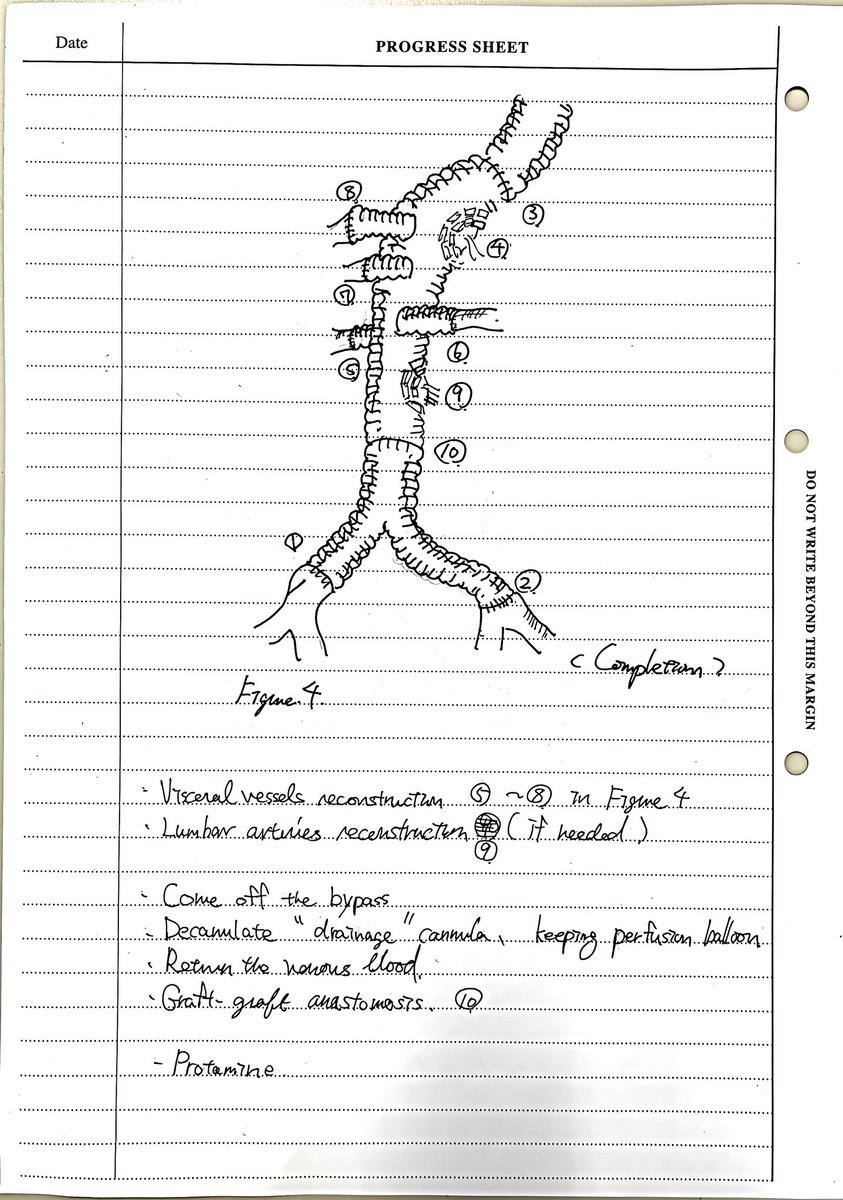 Date
PROGRESS SHEET
⑧
③
④
⑦
⑥
⑤
⑨
⑩
①
②
(Completion)
Figure 4
- Visceral vessels reconstruction ⑤ ~ ⑧ in Figure 4
- Lumbar arteries reconstruction (if needed)
⑨
- Come off the bypass
- Decannulate "drainage" cannula, keeping perfusion balloon
- Return the venous blood.
- Graft-graft anastomosis. ⑩
- Protamine
DO NOT WRITE BEYOND THIS MARGIN